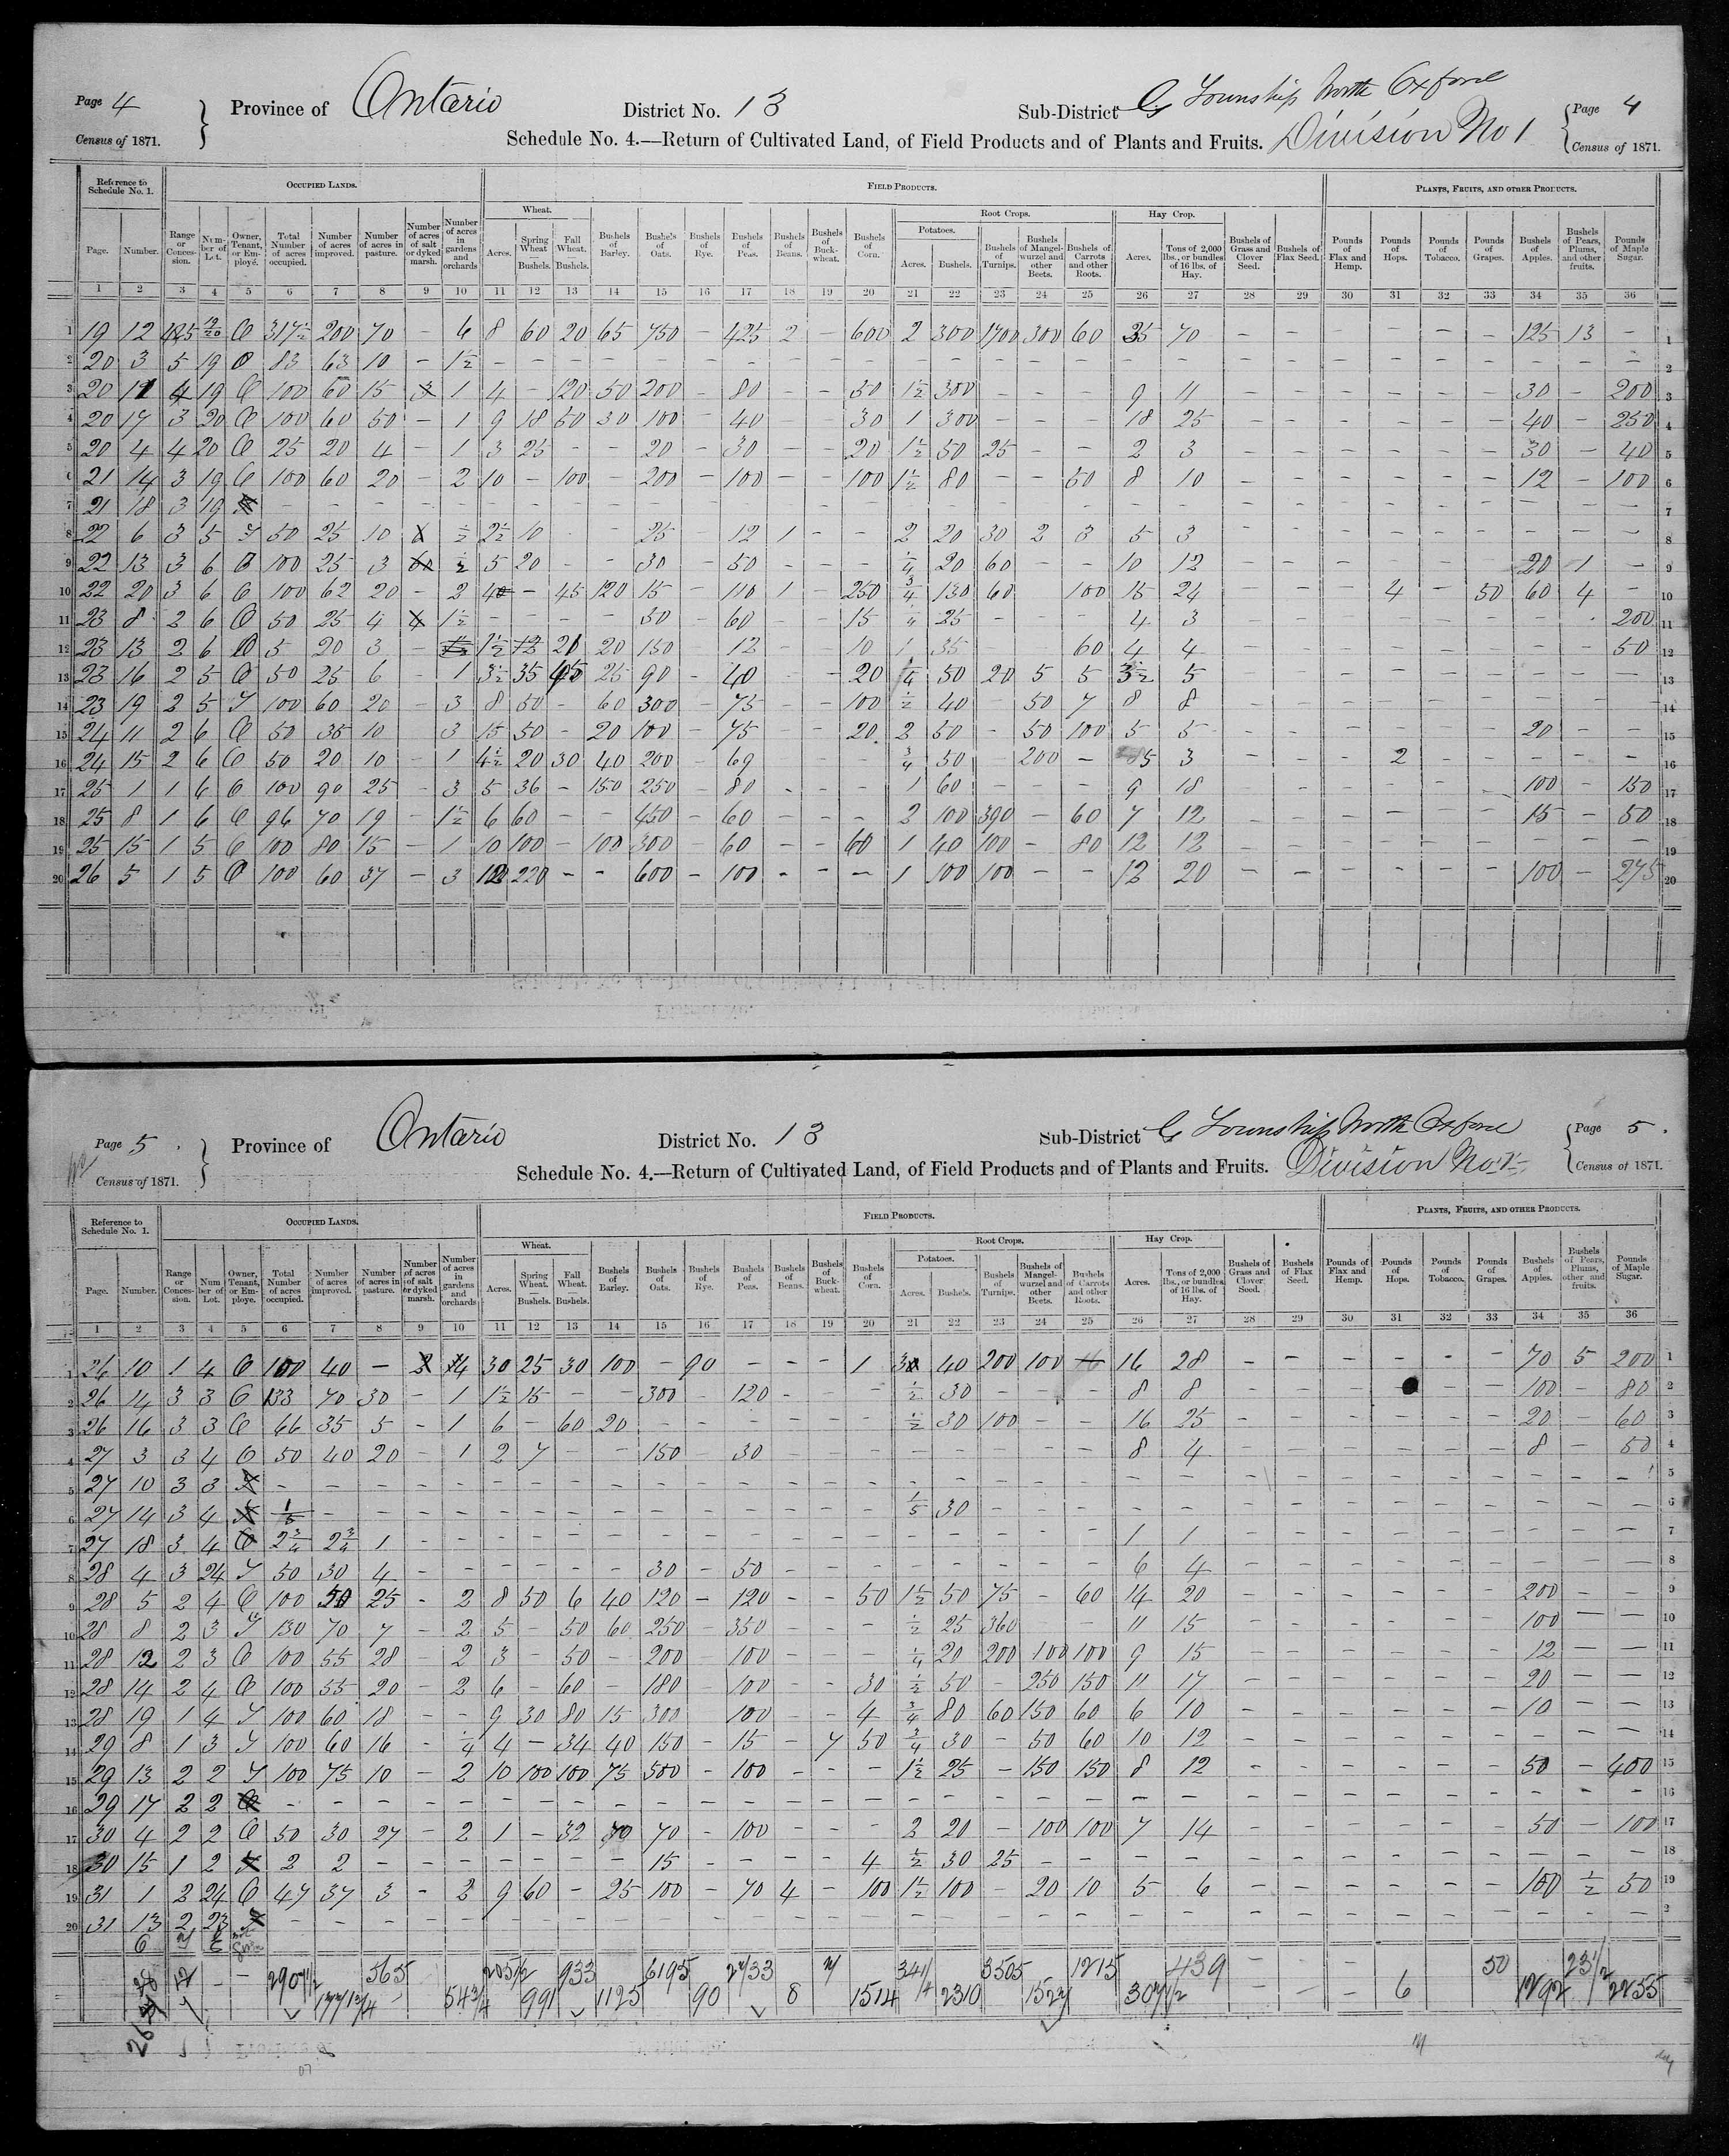 Page 4
Census of 1871.
Province of Ontario
District No. 13
Sub-District G Township North Oxford
Division No 1
Page 4
Census of 1871.
Schedule No. 4.—Return of Cultivated Land, of Field Products and of Plants and Fruits.
Reference to Schedule No. 1. OCCUPIED LANDS. FIELD PRODUCTS. PLANTS, FRUITS, AND OTHER PRODUCTS.
Wheat. Root Crops. Potatoes. Hay Crop.
Page. Number. Range or Concession. Number of Lot. Owner, Tenant, or Employé. Total Number of acres occupied. Number of acres improved. Number of acres in pasture. Number of acres of salt or dyked marsh. Number of acres in gardens and orchards Acres. Spring Wheat — Bushels. Fall Wheat. — Bushels. Bushels of Barley. Bushels of Oats. Bushels of Rye. Bushels of Peas. Bushels of Beans. Bushels of Buckwheat. Bushels of Corn. Acres. Bushels. Bushels of Turnips. Bushels of Mangel-wurzel and other Beets. Bushels of Carrots and other Roots. Acres. Tons of 2,000 lbs., or bundles of 16 lbs. of Hay. Bushels of Grass and Clover Seed. Bushels of Flax Seed. Pounds of Flax and Hemp. Pounds of Hops. Pounds of Tobacco. Pounds of Grapes. Bushels of Apples. Bushels of Pears, Plums, and other fruits. Pounds of Maple Sugar.
1 2 3 4 5 6 7 8 9 10 11 12 13 14 15 16 17 18 19 20 21 22 23 24 25 26 27 28 29 30 31 32 33 34 35 36
1 19 12 O 317½ 200 70 - 6 8 60 20 65 750 - 425 2 - 600 2 300 1700 300 60 35 70 - - - - - - 125 13 - 1
2 20 3 5 19 O 83 63 10 - 1½ - - - - - - - - - - - - - - - - - - - - - - - - - - 2
3 20 11 4 19 O 100 60 15 1 4 - 120 50 200 - 80 - - 50 1½ 300 - - - 9 11 - - - - - - 30 - 200 3
4 20 17 3 20 O 100 60 50 - 1 9 18 50 30 100 - 40 - - 30 1 300 - - - 18 25 - - - - - - 40 - 250 4
5 20 4 4 20 O 25 20 4 - 1 3 25 - - 20 - 30 - - 20 1½ 50 25 - - 2 3 - - - - - - 30 - 40 5
6 21 14 3 19 O 100 60 20 - 2 10 - 100 - 200 - 100 - - 100 1½ 80 - - 50 8 10 - - - - - - 12 - 100 6
7 21 18 3 19 - - - - - - - - - - - - - - - - - - - - - - - - - - 7
8 22 6 3 5 T 50 25 10 ½ 2½ 10 - - 25 - 12 1 - - 2 20 30 2 3 5 3 - - - - - - - - - 8
9 22 13 3 6 O 100 25 3 ½ 5 20 - - 30 - 50 - - - ¼ 20 60 - - 10 12 - - - - - - 20 1 - 9
10 22 20 3 6 O 100 62 20 - 2 4 - 45 120 15 - 110 1 - 250 ¾ 130 60 100 15 24 - - - 4 - 50 60 4 - 10
11 23 8 2 6 O 50 25 4 1½ - - - - 50 - 60 - - 15 ¼ 25 - - - 4 3 - - - - - - - - 200 11
12 23 13 2 6 O 5 20 3 - 1½ 12 20 20 150 - 12 - - 10 1 35 - 60 4 4 - - - - - - - - 50 12
13 23 16 2 5 O 50 25 6 - 1 3½ 35 45 25 90 - 40 - - 20 ¼ 50 20 5 5 3½ 5 - - - - - - - - - 13
14 23 19 2 5 T 100 60 20 - 3 8 50 - 60 300 - 75 - - 100 ½ 40 - 50 7 8 8 - - - - - - - - - 14
15 24 11 2 6 O 50 35 10 3 15 50 - 20 100 - 75 - - 20 2 50 - 50 100 5 5 - - - - - - 20 - - 15
16 24 15 2 6 O 50 20 10 - 1 4½ 20 30 40 200 - 69 ¾ 50 - 200 - 5 3 - - - 2 - - - - - 16
17 25 1 1 6 O 100 90 25 - 3 5 36 - 150 250 - 80 - - - 1 60 - - - 9 18 - - - - - - 100 - 150 17
18 25 8 1 6 O 96 70 19 - 1½ 6 60 - - 450 - 60 - - - 2 100 390 - 60 7 12 - - - - - - 15 - 50 18
19 25 15 1 5 O 100 80 15 - 1 10 100 - 100 300 - 60 - - 60 1 40 100 - 80 12 12 - - - - - - - - - 19
20 26 5 1 5 O 100 60 37 - 3 12 220 - - 600 - 100 - - - 1 100 100 - - 12 20 - - - - - - 100 - 275 20
Page 5.
Census of 1871.
Province of Ontario
District No. 13
Sub-District G Township North Oxford
Division No 1
Page 5.
Census of 1871.
Schedule No. 4.—Return of Cultivated Land, of Field Products and of Plants and Fruits.
Reference to Schedule No. 1. OCCUPIED LANDS. FIELD PRODUCTS. PLANTS, FRUITS, AND OTHER PRODUCTS.
Wheat. Root Crops. Potatoes. Hay Crop.
Page. Number. Range or Concession. Number of Lot. Owner, Tenant, or Employe. Total Number of acres occupied. Number of acres improved. Number of acres in pasture. Number of acres of salt or dyked marsh. Number of acres in gardens and orchards Acres. Spring Wheat. — Bushels. Fall Wheat. — Bushels. Bushels of Barley. Bushels of Oats. Bushels of Rye. Bushels of Peas. Bushels of Beans. Bushels of Buckwheat. Bushels of Corn. Acres. Bushels. Bushels of Turnips. Bushels of Mangel-wurzel and other Beets. Bushels of Carrots and other Roots. Acres. Tons of 2,000 lbs., or bundles of 16 lbs. of Hay. Bushels of Grass and Clover Seed. Bushels of Flax Seed. Pounds of Flax and Hemp. Pounds of Hops. Pounds of Tobacco. Pounds of Grapes. Bushels of Apples. Bushels of Pears, Plums, other and fruits. Pounds of Maple Sugar.
1 2 3 4 5 6 7 8 9 10 11 12 13 14 15 16 17 18 19 20 21 22 23 24 25 26 27 28 29 30 31 32 33 34 35 36
1 26 10 1 4 O 100 40 - 4 30 25 30 100 - 90 - - - 1 3 40 200 100 16 28 - - - - - - 70 5 200 1
2 26 14 3 3 O 133 70 30 - 1 1½ 15 - - 300 - 120 - - - ½ 30 - - - 8 8 - - - - - 100 - 80 2
3 26 16 3 3 O 66 35 5 - 1 6 - 60 20 - - - - - - ½ 30 100 - - 16 25 - - - - - - 20 - 60 3
4 27 3 3 4 O 50 40 20 - 1 2 7 - - 150 - 30 - - - - - - - - 8 4 - - - - - - 8 - 50 4
5 27 10 3 3 - - - - - - - - - - - - - - - - - - - - - - - - - - 5
6 27 14 3 4 1/5 - - - - - - - - - - - - - - 1/5 30 - - - - - - - - - - - - - - 6
7 27 18 3 4 O 2¾ 2¾ 1 - - - - - - - - - - - - - - - - - 1 1 - - - - - - - - - 7
8 28 4 3 24 T 50 30 4 - - - - - - 30 - 50 - - - - - - - - 6 4 - - - - - - - - - 8
9 28 5 2 4 O 100 50 25 - 2 8 50 6 40 120 - 120 - - 50 1½ 50 75 - 60 14 20 - - - - - - 200 - - 9
10 28 8 2 3 T 130 70 7 - 2 5 - 50 60 250 - 350 - - - ½ 25 360 - 11 15 - - - - - - 100 - - 10
11 28 12 2 3 O 100 55 28 - 2 3 - 50 - 200 - 100 - - - ¼ 20 200 100 100 9 15 - - - - - - 12 - - 11
12 28 14 2 4 O 100 55 20 - 2 6 - 60 - 180 - 100 - - 30 ½ 50 - 250 150 11 17 - - - - - - 20 - - 12
13 28 19 1 4 T 100 60 18 - - 9 30 80 15 300 100 - - 4 ¾ 80 60 150 60 6 10 - - - - - - 10 - - 13
14 29 8 1 3 T 100 60 16 - ¼ 4 - 34 40 150 - 15 - 7 50 ¾ 30 - 50 60 10 12 - - - - - - - - - 14
15 29 13 2 2 T 100 75 10 - 2 10 100 100 75 500 - 100 - - - 1½ 25 - 150 150 8 12 - - - - - - 50 - 400 15
16 29 17 2 2 - - - - - - - - - - - - - - - - - - - - - - - - - - 16
17 30 4 2 2 O 50 30 27 - 2 1 - 32 70 70 - 100 - - - 2 20 - 100 100 7 14 - - - - - - 50 - 100 17
18 30 15 1 2 2 2 - - - - - - - 15 - - - - 4 ½ 30 25 - - - - - - - - - - - - - 18
19 31 1 2 24 O 47 37 3 - 2 9 60 - 25 100 - 70 4 - 100 1½ 100 - 20 10 5 6 - - - - - - 100 ½ 50 19
20 31 13 2 23 - - - - - - - - - - - - - - - - - - - - - - - - - -
565 205½ 933 6195 2733 7 34¼ 3505 1215 439 - - 50 23½
54¾ 991 1125 90 8 1514 2310 1527 307½ - - - 6 1292 2255